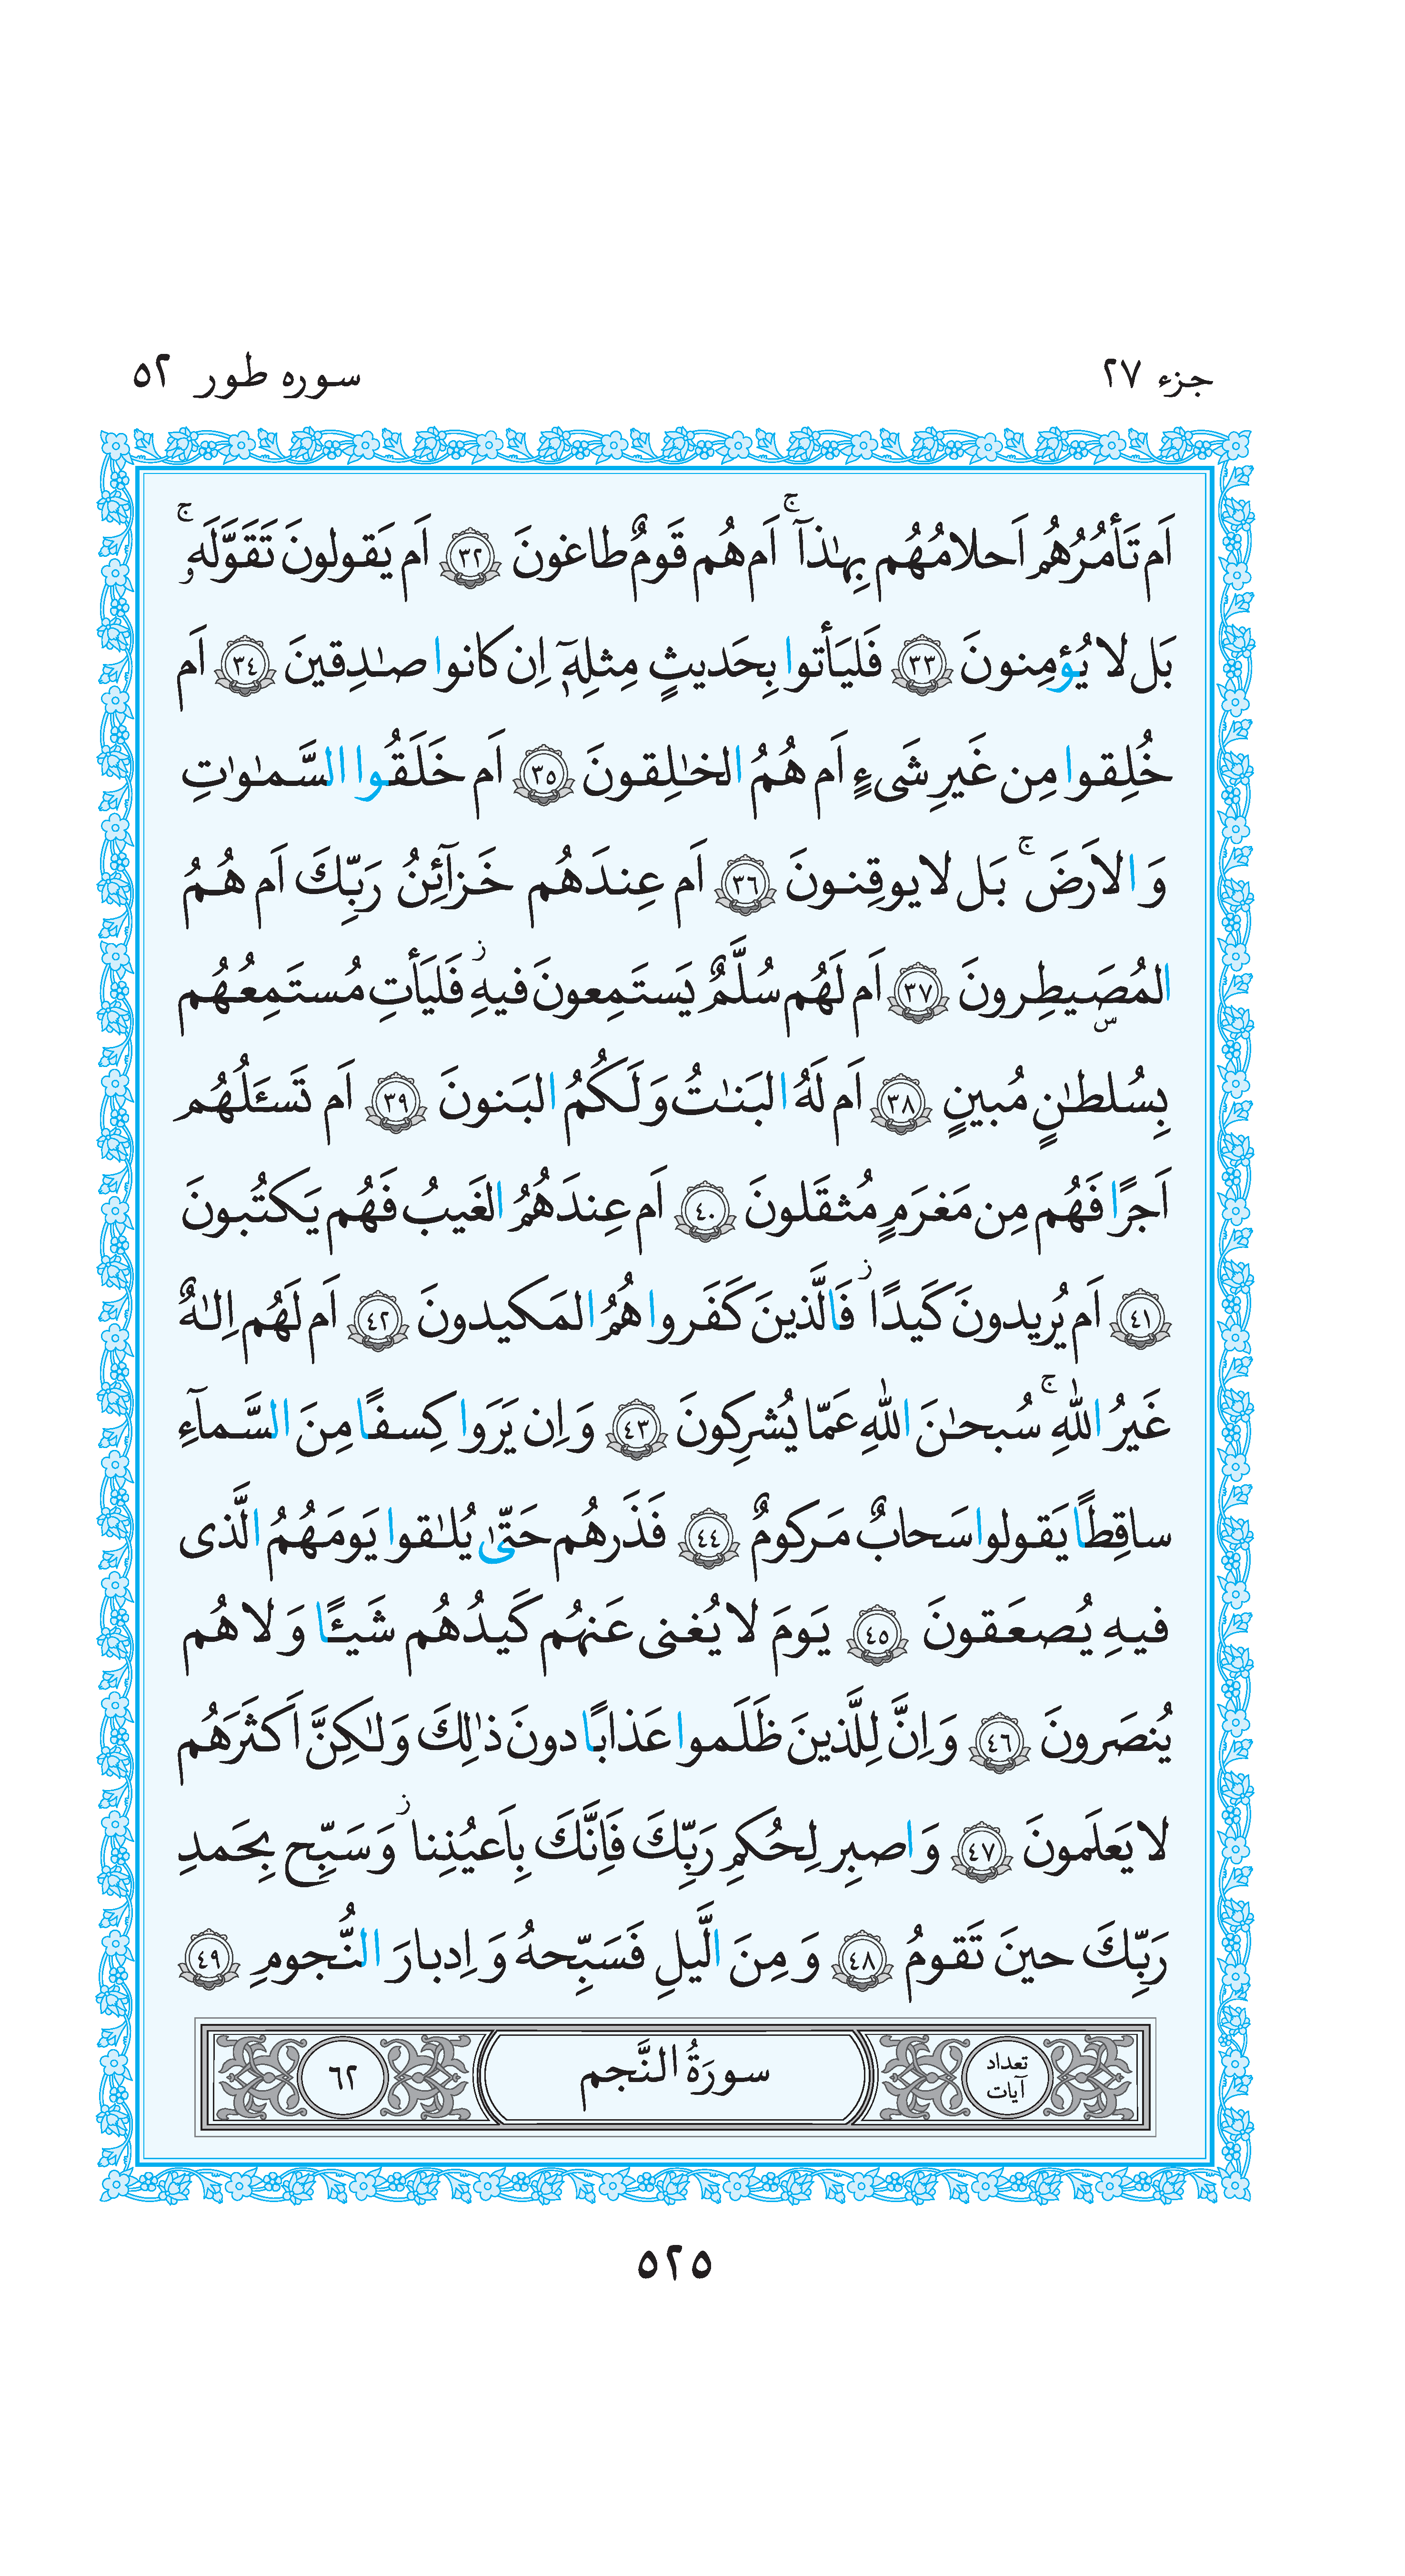 جزء ۲۷
سوره طور ۵۲
اَم تَأمُرُهُم اَحلامُهُم بِهٰذآ ۚ اَم هُم قَومٌ طاغونَ ﴿٣٢﴾ اَم يَقولونَ تَقَوَّلَهٗ ۚ
بَل لا يُؤمِنونَ ﴿٣٣﴾ فَليَأتوا بِحَديثٍ مِثلِهٖٓ اِن كانوا صٰدِقينَ ﴿٣٤﴾ اَم
خُلِقوا مِن غَيرِ شَیءٍ اَم هُمُ الخٰلِقونَ ﴿٣٥﴾ اَم خَلَقُوا السَّمٰوٰتِ
وَ الاَرضَ ۚ بَل لا يوقِنونَ ﴿٣٦﴾ اَم عِندَهُم خَزآئِنُ رَبِّكَ اَم هُمُ
المُصَۜيطِرونَ ﴿٣٧﴾ اَم لَهُم سُلَّمٌ يَستَمِعونَ فيهِ ز فَليَأتِ مُستَمِعُهُم
بِسُلطٰنٍ مُبينٍ ﴿٣٨﴾ اَم لَهُ البَنٰتُ وَ لَكُمُ البَنونَ ﴿٣٩﴾ اَم تَسـَٔلُهُم
اَجرًا فَهُم مِن مَغرَمٍ مُثقَلونَ ﴿٤٠﴾ اَم عِندَهُمُ الغَيبُ فَهُم يَكتُبونَ
﴿٤١﴾ اَم يُريدونَ كَيدًا ز فَالَّذينَ كَفَروا هُمُ المَكيدونَ ﴿٤٢﴾ اَم لَهُم اِلٰهٌ
غَيرُ اللهِ ۚ سُبحٰنَ اللهِ عَمّا يُشرِكونَ ﴿٤٣﴾ وَ اِن يَرَوا كِسفًا مِنَ السَّمآءِ
ساقِطًا يَقولوا سَحابٌ مَركومٌ ﴿٤٤﴾ فَذَرهُم حَتّىٰ يُلٰقوا يَومَهُمُ الَّذی
فيهِ يُصعَقونَ ﴿٤٥﴾ يَومَ لا يُغنی عَنهُم كَيدُهُم شَيـًٔا وَ لا هُم
يُنصَرونَ ﴿٤٦﴾ وَ اِنَّ لِلَّذينَ ظَلَموا عَذابًا دونَ ذٰلِكَ وَ لٰكِنَّ اَكثَرَهُم
لا يَعلَمونَ ﴿٤٧﴾ وَ اصبِر لِحُكمِ رَبِّكَ فَاِنَّكَ بِاَعيُنِنا ز وَ سَبِّح بِحَمدِ
رَبِّكَ حينَ تَقومُ ﴿٤٨﴾ وَ مِنَ الَّيلِ فَسَبِّحهُ وَ اِدبارَ النُّجومِ ﴿٤٩﴾
تعداد آيات
سورَةُ النَّجم
٦٢
٥٢٥